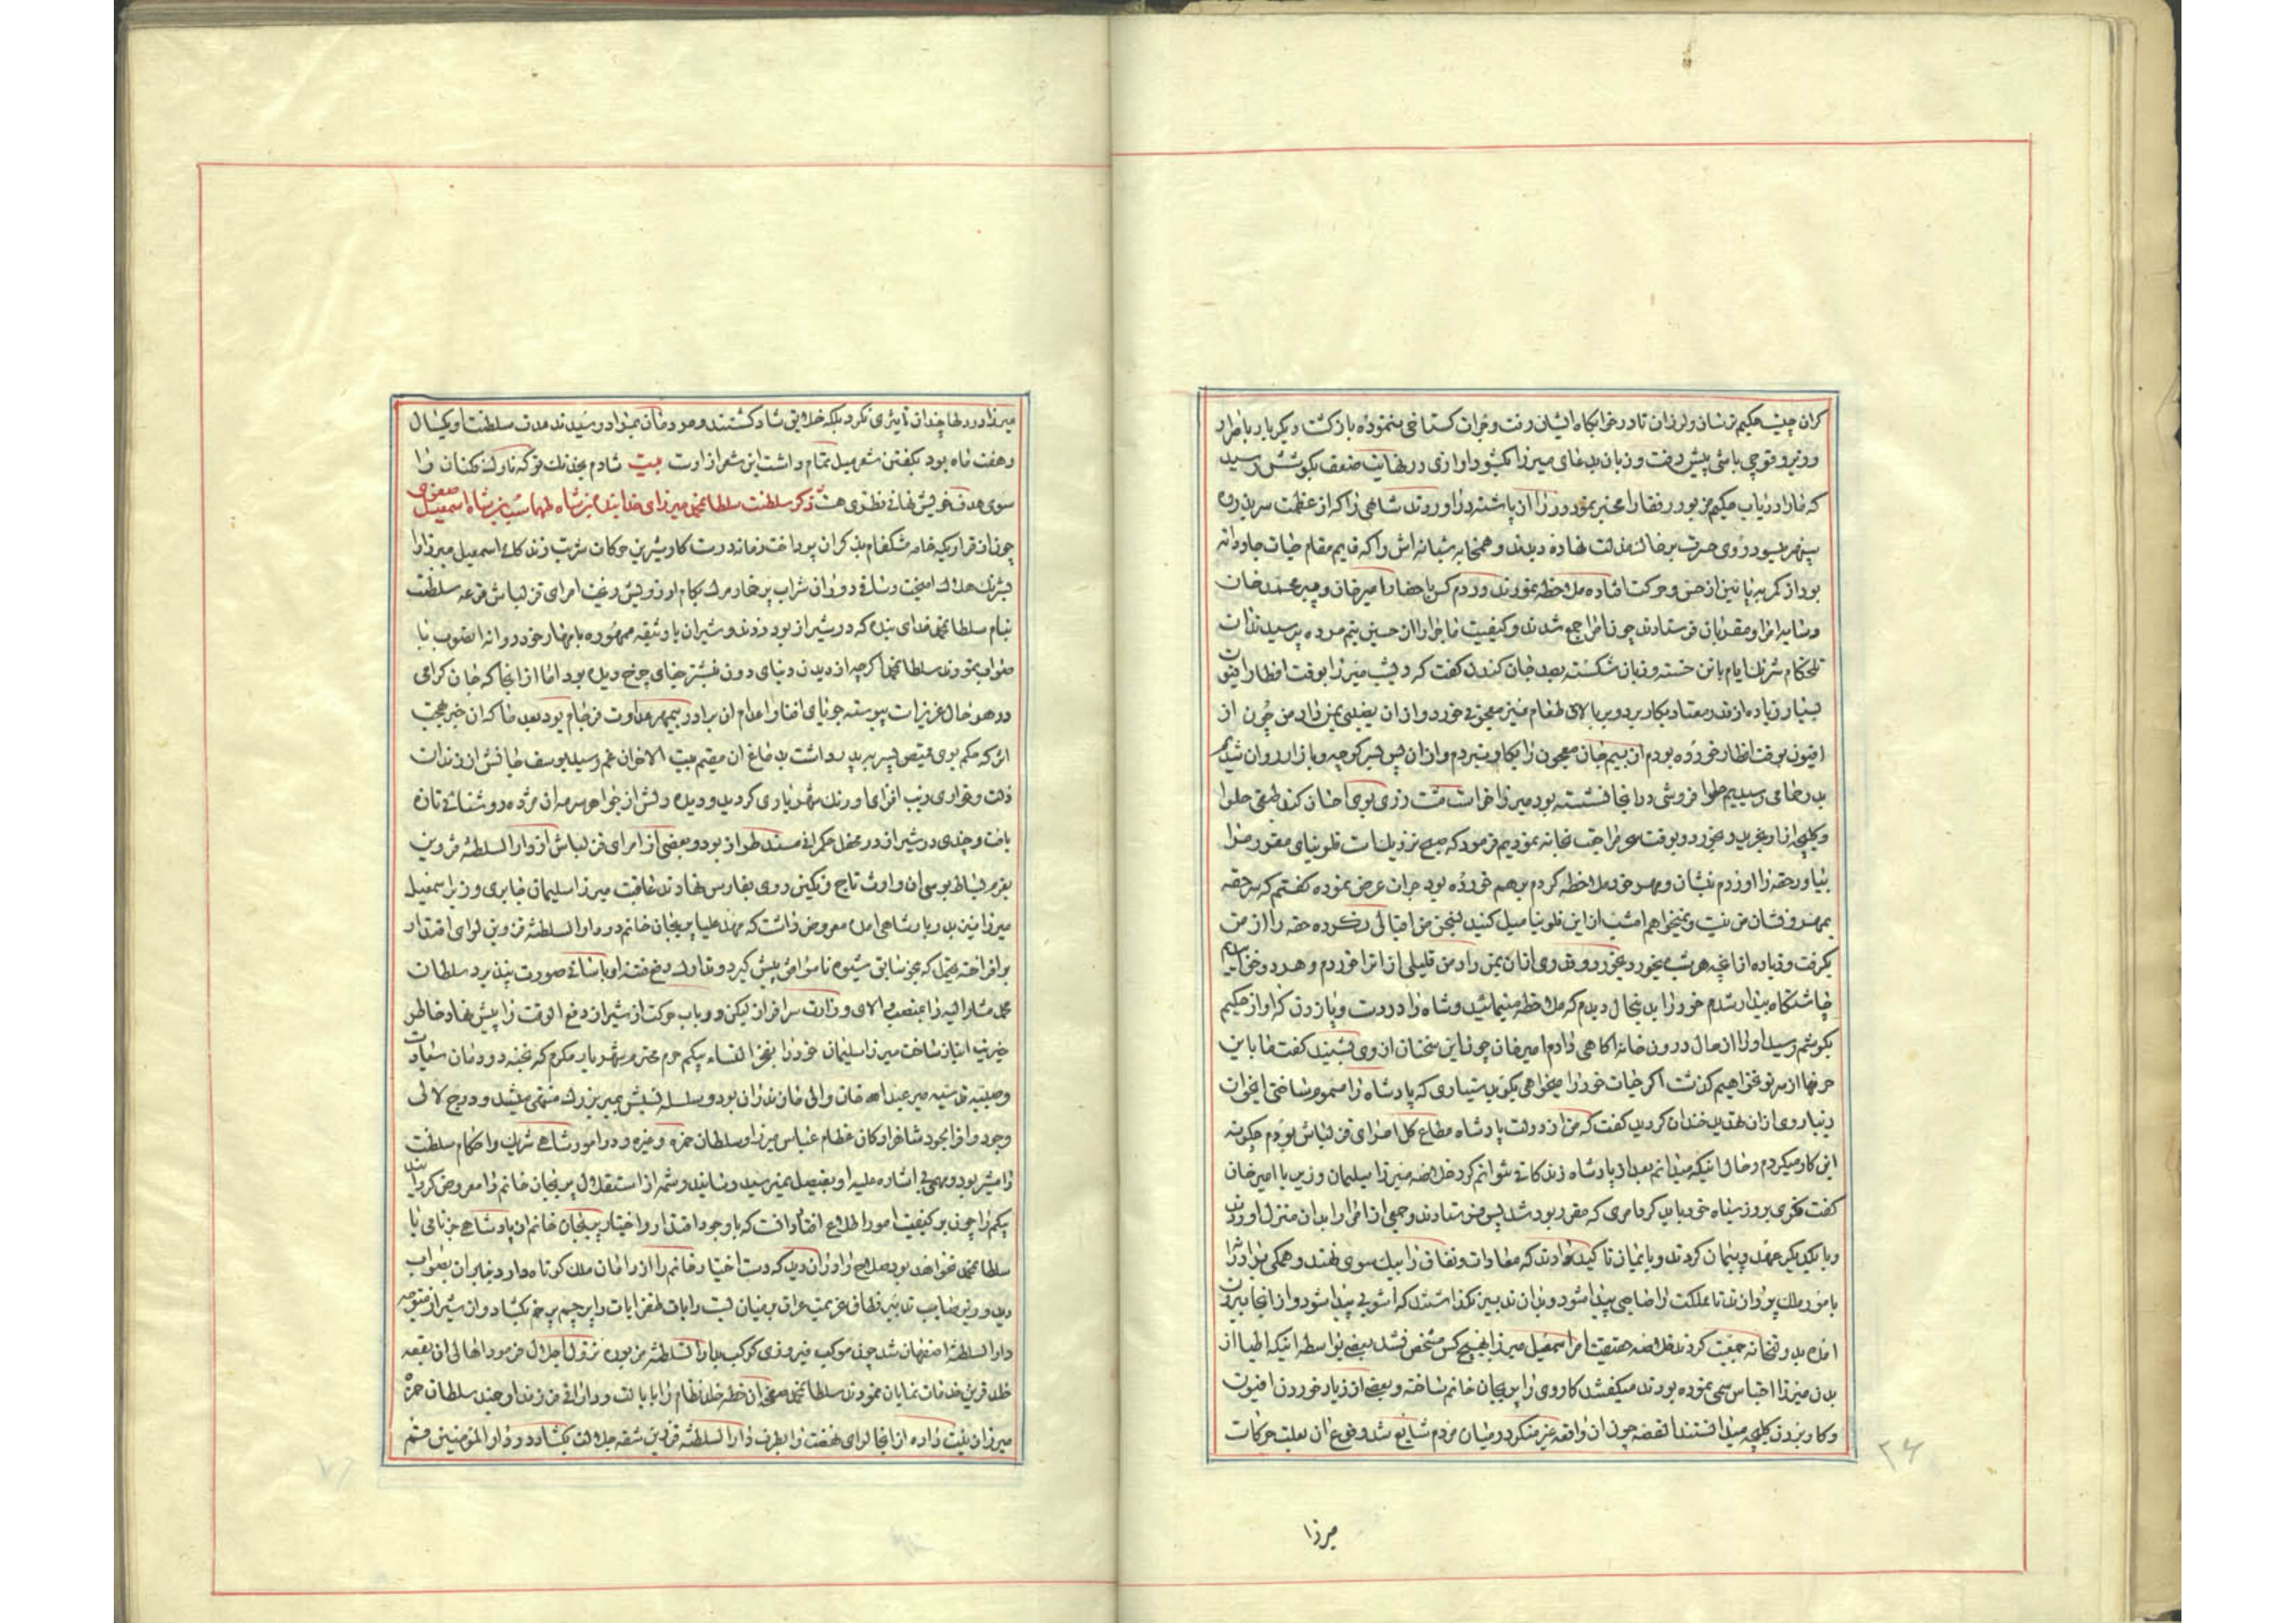 کران چیست حکیم ترسان و لرزان تا در خوابگاه ایشان رفت و جرات گستاخی ننموده بازگشت دیگر باره باضرار
وزیر و قوچی باشی پیش رفت و زبان بدعای میرزا گشود اوازی در نهایت ضعف بگوشش رسید
که مارا دریاب حکیم مزبور رفقا را مخبر نموده در را از پاشنه دراوردند شاهی را که از عظمت سر بذروه
سپهر میسود روی حسرت بر خاک مذلت نهاده دیدند و همخوابه شبانه اش را که قدیم مقام حیات جاودانه
بود از کمر به پائین از حس و حرکت افتاده ملاحظه نمودند در دم کس باحضار امیرخان و پیر محمد خان
و سایر امرا و مقربان فرستادند چون امرا جمع شدند و کیفیت ماجرا از ان حسین یتیم مرده پرسیدند ان
تلخکام شرنک ایام با تن خسته و زبان شکسته بصد جان کندن گفت که دیشب میرزا بوقت افطار افیون
بسیار زیاده از قدر معتاد بکار برد و بر بالای طعام نیز معجونی خورد و از ان بعضی بمن داد من چون از
افیون بوقت افطار خورده بودم از بیم جان معجون را بکار نبردم و از ان پس بسیر کوچه و بازار روان شدیم
بدر حمامی رسیدیم حلوا فروشی در انجا نشسته بود میرزا
وکلیچه از او خرید و بخورد و بوقت سحر مراجعت بخانه نمودیم فرمود که حقه فلونیای مقرر مرا
بیاور حقه را اوردم نشان و مهر خود ملاحظه کردم بر هم خورده بود جران عرض نموده گفتم که سر حقه
بمهر و نشان من نیست و نمیخواهم امشب از این فلونیا میل کنید بسخن من اقبالی نکرده حقه را از من
بگرفت و زیاده از انچه هر شب میخورد بخورد و قدری از ان بمن داد من قلیلی از انرا خوردم و هر دو خوابیدیم
چاشتگاه بیدار شدم خود را بدینحال دیدم که ملاحظه مینمائید و شاه را در دست و پا زدن که اواز حکیم
بگوشم رسید او را از حال درون خانه اگاهی دادم امیرخان چون این سخنان از وی بشنید گفت ما باین
حرفها از سر تو نخواهیم گذشت اگر حیات خود را میخواهی بگو بدستیاری که پادشاه را مسموم ساختی انجوان
دنیا روی از ان تهدید خندان گردید گفت که من از دولت پادشاه مطاع کل امرای قزلباش بودم چگونه
این کار میکردم و حال اینکه میدانم بعد از پادشاه زندگانی نتوانم کرد خلاصه میرزا سلیمان وزیر با امیرخان
گفت فکری بروز سیاه خود باید کرد امری که مقدر بود شد پس فرستادند و جمعی از امرا را بدان منزل اوردند
و با یکدیگر عهد و پیمان کردند و بایمان تاکید دادند که معادات و نفاق را بیک سوی نهند و همگی
بامور ملک پردازند تا مملکت را صاحبی پیدا شود و بدان تدبیر نگذاشتند که اشوبی پیدا شود و از انجا بیرون
امده بدولتخانه جمعیت کردند خلاصه حقیقت امر اسمعیل میرزا بهیچ کس مشخص نشد بعضی بواسطه اینکه اطبا از
بدن میرزا احتباس سمی نموده بودند میگفتند کار وی را پریجان خانم ساخته و بعضی از زیاد خوردن افیون
و کار بردن کلیچه میدانستند القصه چون ان واقعه غیر منکر در میان مردم شایع شد وقوع ان بعلت حرکات
میرزا
۲۶
میرزا در دلها چندان تاثیری نکرد بلکه خلایق شاد گشتند و هر دو مان بمراد رسیدند مدت سلطنت او یکسال
و هفت ماه بود بگفتن شعر میل تمام داشت این شعر از اوست بیت شادم بخدنک تو که ناوک فکنان را
سوی هدف خویش نهانی نظری هست ذکر سلطنت سلطان محمد میرزای خدابنده بن شاه طهماسب بن شاه اسمعیل صفوی
چون از قراریکه خامه مشکفام بذکر ان پرداخت زمانه درست کار شیرین حرکات شربت زندگانی اسمعیل میرزا را
بشرنک هلاک امیخت و ساقی دوران شراب پر خمار مرک بکام او فرو ریخت امرای قزلباش قرعه سلطنت
بنام سلطان محمد خدای بنده که در شیراز بود زدند و شیران با وثیقه ممهوره بامهار خود روانه انصوب با
صواب نمودند سلطان محمد اگرچه از دیدن دنیای دون بنشتر جفای چرخ دیده بود اما از انجا که جان گرامی
در هر حال عزیز است پیوسته جویای افنا و اعدام ان برادر بیمهر عداوت فرجام بود بعد ما که ان خبر بهجت
اثر که حکم بوی قمیص پسر بر پدر داشت بدماغ ان مقیم بیت الاحزان غم رسید یوسف جانش از زندان
ذلت و خواری زیب افزای اورنک شهریاری گردید و دیده دلش از جواهر سرمه ان مژده روشنائی تازه
یافت و چندی در شیراز در محفل حکمرانی مسند طراز بود و بعضی از امرای قزلباش از دارالسلطنه قزوین
بعزم بساط بوسی ان وارث تاج و نگین روی بفارس نهادند عاقبت میرزا سلیمان جابری وزیر اسمعیل
میرزا نیز بدربار شاهی امده معروض داشت که مهد علیا پریجان خانم در دارالسلطنه قزوین لوای اقتدار
بر افراخته یحتمل که بنحو سابق شیوه ناسزائی پیش گیرد و تدارک دفع فتنه او باسانی صورت پذیرد سلطان
محمد مشار الیه را بمنصب والای وزارت سرافراز لیکن در باب حرکت از شیراز دفع الوقت را پیش نهاد خاطر
خیریت انباز ساخت میرزا سلیمان خود را بفخر النساء بیگم حرم محترم شهریار مکرم که نخبه دودمان سیادت
و صبیه رضیه میر عبدالله خان والی مازندران بود و سلسله نسبش بمیر بزرک منتهی میشد و در درج لالی
وجود وافر الجود شاهزادگان عظام عباس میرزا و سلطان حمزه و غیره و در امور شاهی شریک و احکام سلطنت
را مشیر بود و مهمی بی اشاره علیه او بفیصل نمیرسید رسانیده و شمه از استقلال پریجان خانم را معروض گردانید
بیگم را چون بر کیفیت امور اطلاع افتاد دانست که با وجود اقتدار و اختیار پریجان خانم از پادشاهی جز نامی با
سلطان محمد نخواهد بود صلاح را در ان دید که دست اختیار خانم را از دامان ملک کوتاه دارد بنابر ان بصواب
دید وزیر صایب تدبیر نطاق عزیمت عراق بر میان بست و رایات ظفر ایات را پرچم پر خم بگشاد و از شیراز متوجه
دارالسلطنه اصفهان شد چون موکب فیروزی کوکب بدارالسلطنه مزبوره نزول اجلال فرمود اهالی ان بقعه
خلد قرین خدمات نمایان نمودند سلطان محمد معزی الیه خطه خلد نظام را بایالت و دارائی فرزند ارجمند سلطان حمزه
میرزا زینت داده از انجا لوای نهضت را بطرف دارالسلطنه قزوین شقه جلالت بگشاد و در دارالمؤمنین قم